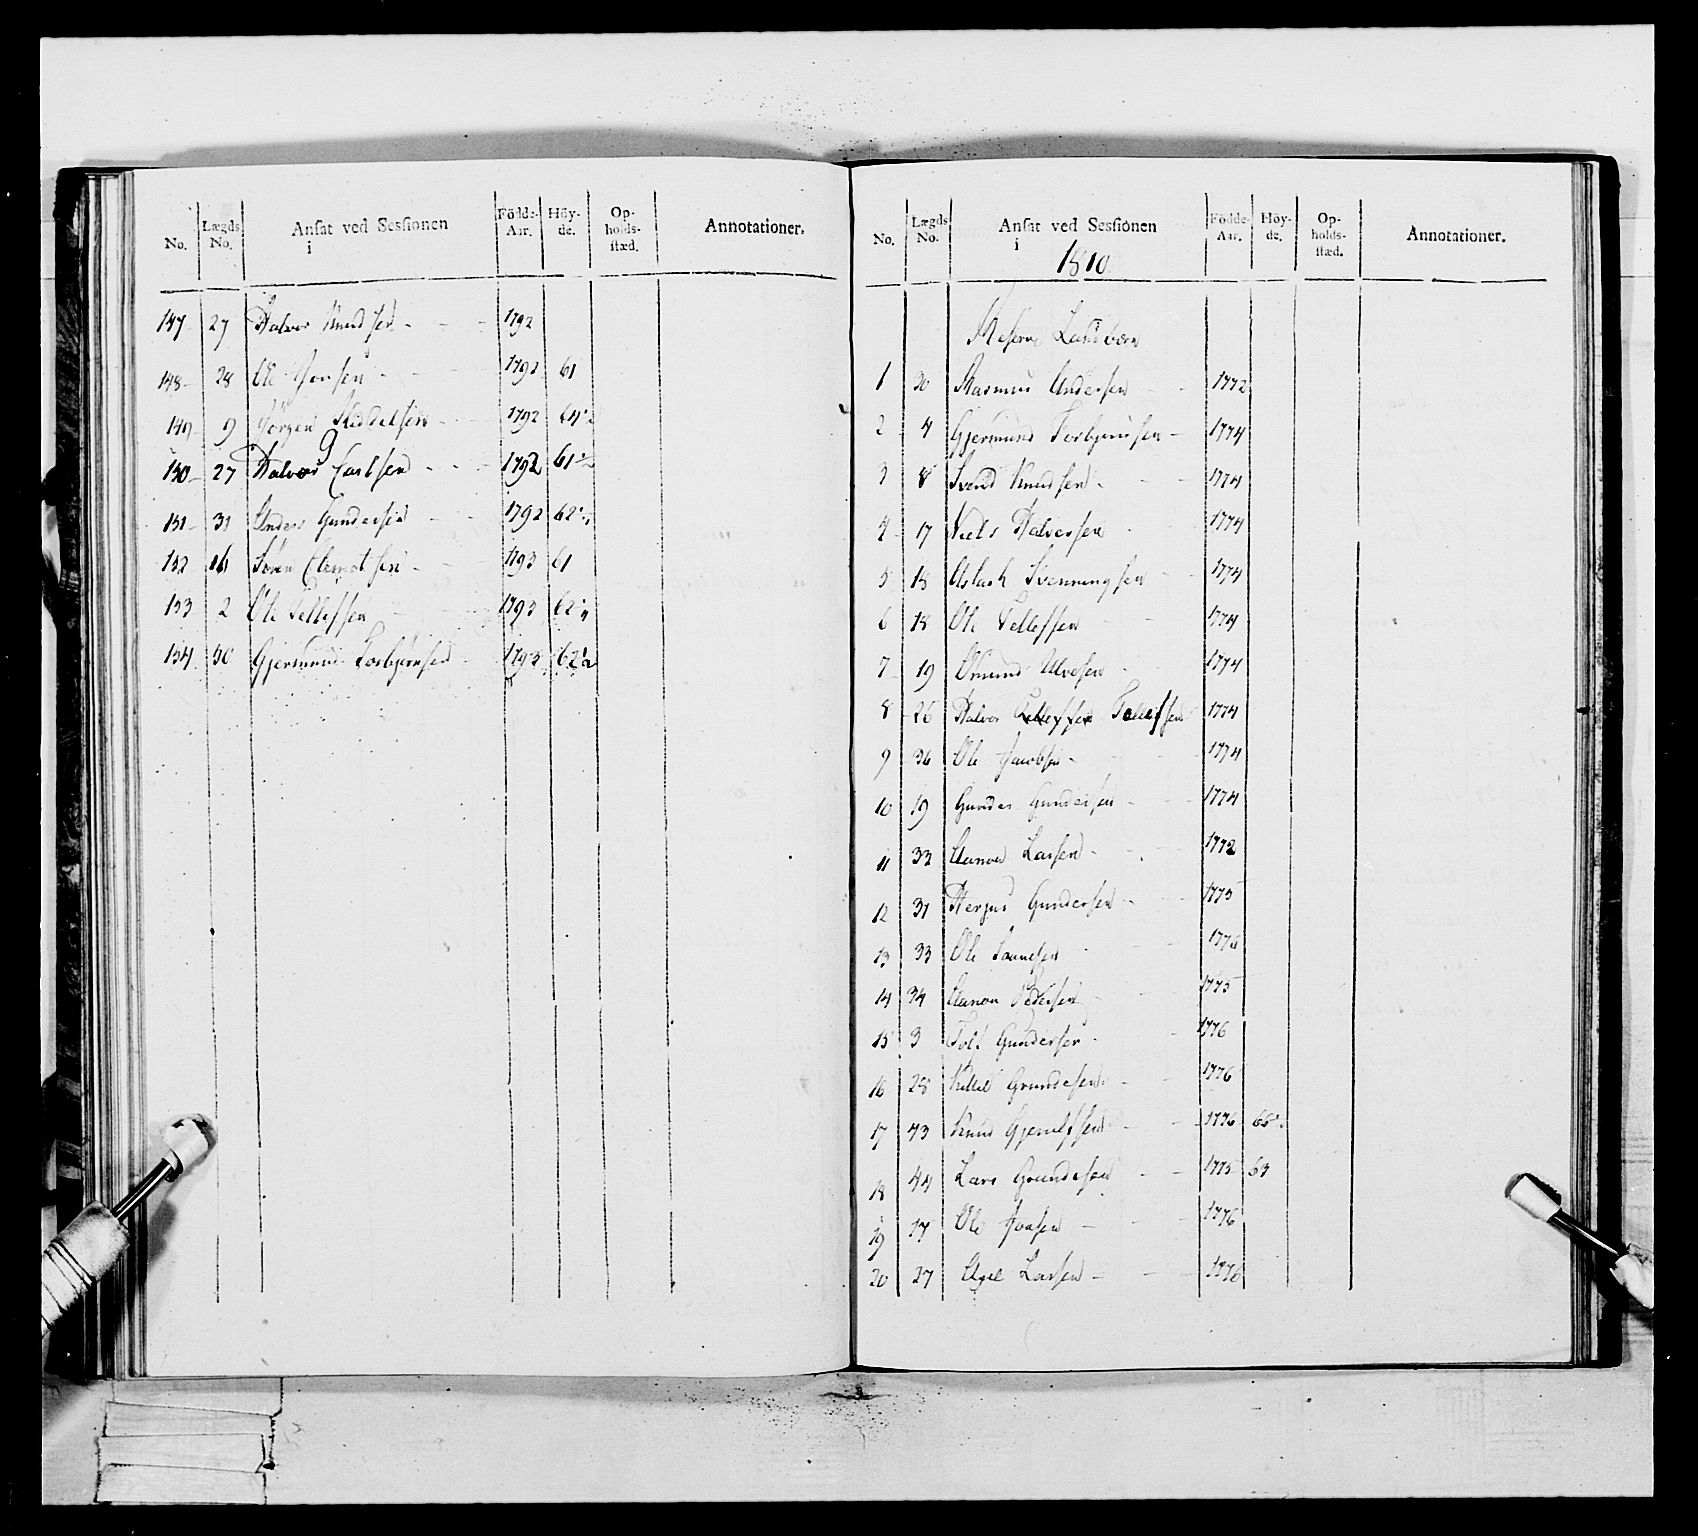 No. Lægds No. Ansat ved Sessionen i Födde-Aar. Höy-de. Op-holds-stæd. Annotationer.
147 27 Halvor Knudsen 1792
148 28 Ole Jonsen 1792 61
149 9 Jörgen Kiddelsen 1792 64
150 27 Halvor Carlsen 1792 61
151 31 Anders Gundersen 1792 62
152 16 Søren Clemetsen 1793 61
153 2 Ole Tellefsen 1793 62
154 30 Gjermund Torbjørnsen 1793 62½
No. Lægds No. Ansat ved Sessionen i Födde-Aar. Höy-de. Op-holds-stæd. Annotationer.
1810
Reserve Landværn
1 30 Rasmus Andersen 1772
2 4 Gjermund Torbjørnsen 1774
3 8 Svend Knudsen 1774
4 17 Niels Halversen 1774
5 18 Aslach Svenningsen 1774
6 18 Ole Tellefsen 1774
7 19 Omund Alvesen 1774
8 26 Halvor Tellefsen 1774
9 36 Ole Jacobsen 1774
10 19 Gunder Gundersen 1774
11 33 Aanon Larsen 1772
12 31 Herjus Gundersen 1775
13 33 Ole 1776
14 34 Aanon Pedersen 1775
15 3 Gundersen 1776
16 28 Kittil Grundesen 1776
17 43 Knud 1776 65
18 44 Lars Grundesen 1775 63
19 17 Ole Jonsen 1776
20 27 Larsen 1776